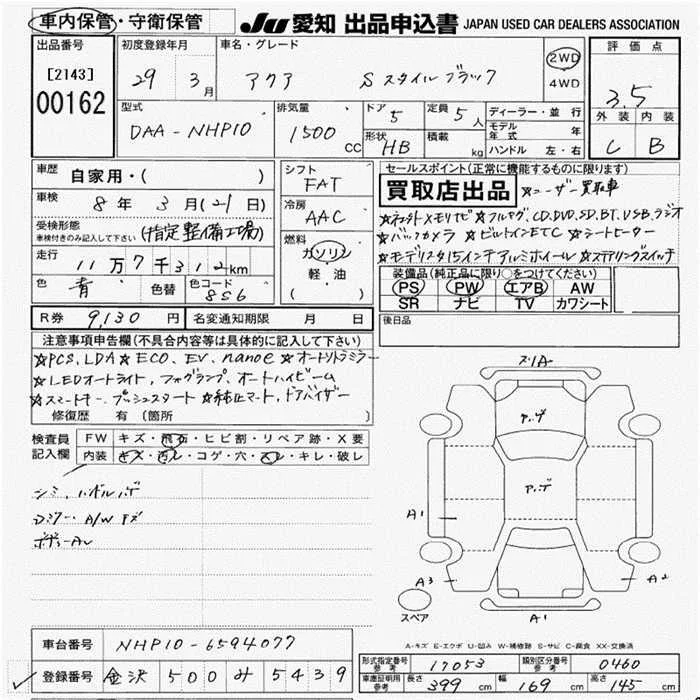 車内保管・守衛保管
JU 愛知 出品申込書 JAPAN USED CAR DEALERS ASSOCIATION
出品番号
[2143]
00162
初度登録年月
29 3 月
車名・グレード
アクア Sスタイルブラック
2WD
4WD
評価点
3.5
外装 内装
C B
型式
DAA-NHP10
排気量
1500 CC
ドア 5
形状 HB
定員 5 人
積載 kg
ディーラー・並行
モデル年式 年
ハンドル 左・右
車歴 自家用・( )
車検 8 年 3 月(21日)
受検形態
車検付きのみ記入して下さい (指定整備工場)
走行 11万7千312km
色 青 色替 色コード 8S6
シフト
FAT
冷房
AAC
燃料
ガソリン
軽・油
( )
R券 9,130 円 名変通知期限 月 日
セールスポイント(正常に機能するものに限ります)
買取店出品 ☆ユーザー買取車
☆バックカメラ ☆ビルトインETC ☆シートヒーター
☆モデリスタ15インチアルミホイール ☆ステアリングスイッチ
装備品(純正品に限り○をつけてください)
PS PW エアB AW
SR ナビ TV カワシート
後日品
注意事項申告欄(不具合内容等は具体的に記入して下さい)
☆PCS、LDA ☆ECO、EV、nanoe ☆オートリトラミラー
☆LEDオートライト、フォグランプ、オートハイビーム
☆スマートキー、プッシュスタート ☆純正マット、ドアバイザー
修復歴 有 (箇所 )
検査員記入欄
FW キズ・飛石・ヒビ割・リペア跡・X要
内装 キズ・汚レ・コゲ・穴・スレ・キレ・破レ
シミ、ハンドルハゲ
A/W キズ
アンダ
アンダ
A1
A3
A2
A1
スペア
A-キズ E-エクボ U-凹み W-補修跡 S-サビ C-腐食 XX-交換済
車台番号 NHP10-6594077
登録番号 金沢 500 み 5439
形式指定番号 参考 17053 類別区分番号 参考 0460
車庫証明用 参考 長さ 399 cm 幅 169 cm 高さ 145 cm